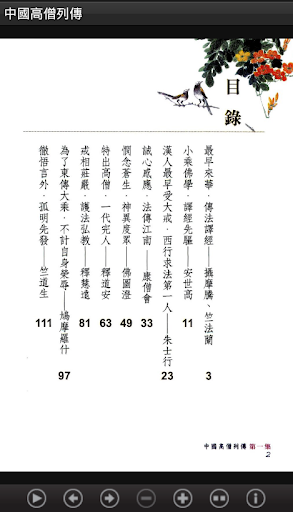 中國高僧列傳
目錄
最早來華，傳法譯經——攝摩騰、竺法蘭 3
小乘佛學，譯經先驅——安世高 11
漢人最早受大戒，西行求法第一人——朱士行 23
誠心感應，法傳江南——康僧會 33
憫念蒼生，神異度眾——佛圖澄 49
特出高僧，一代完人——釋道安 63
戒相莊嚴，護法弘教——釋慧遠 81
為了東傳大乘，不計自身榮辱——鳩摩羅什 97
徹悟言外，孤明先發——竺道生 111
中國高僧列傳 第一集
2